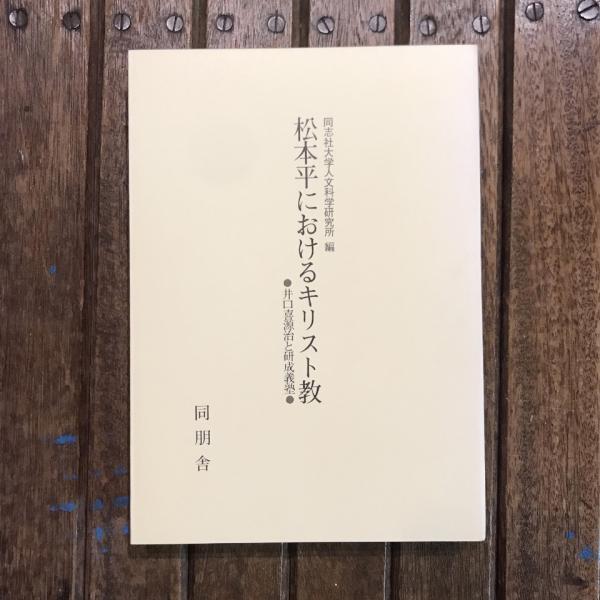 同志社大学人文科学研究所 編
松本平におけるキリスト教
●井口喜源治と研成義塾●
同朋舎